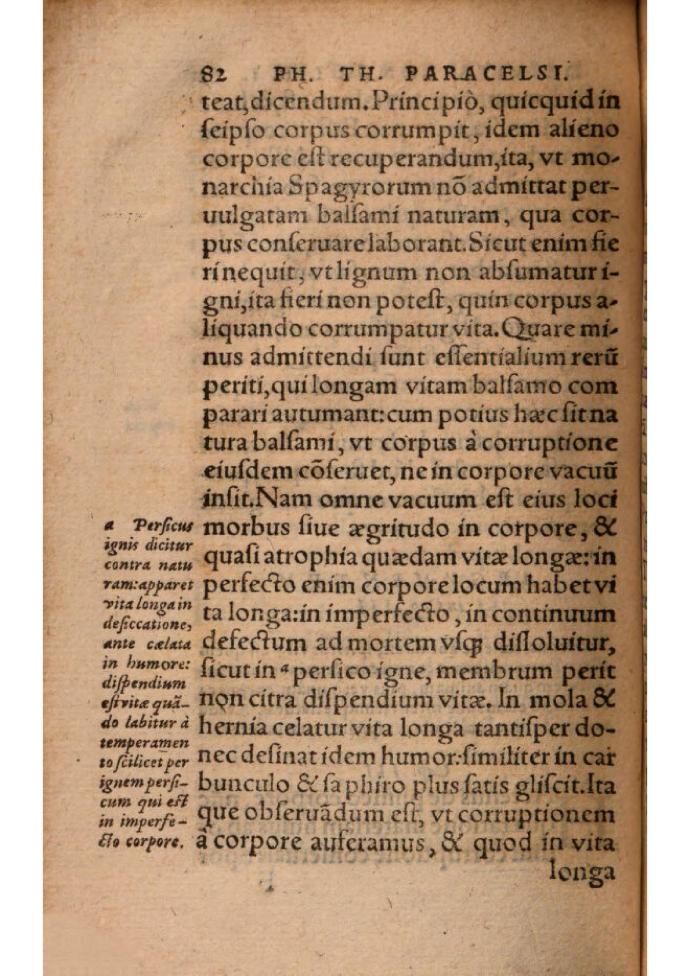 82 PH. TH. PARACELSI.
teat, dicendum. Principiò, quicquid in
ſeipſo corpus corrumpit, idem alieno
corpore eſt recuperandum, ita, vt mo-
narchia Spagyrorum nõ admittat per-
uulgatam balſami naturam, qua cor-
pus conſeruare laborant. Sicut enim fie
ri nequit, vt lignum non abſumatur i-
gni, ita fieri non poteſt, quin corpus a-
liquando corrumpatur vita. Quare mi-
nus admittendi ſunt eſſentialium rerũ
periti, qui longam vitam balſamo com
parari autumant: cum potius hæc ſit na
tura balſami, vt corpus à corruptione
eiuſdem cõſeruet, ne in corpore vacuũ
inſit. Nam omne vacuum eſt eius loci
morbus ſiue ægritudo in corpore, &
quaſi atrophia quædam vitæ longæ: in
perfecto enim corpore locum habet vi
ta longa: in imperfecto, in continuum
defectum ad mortem vſꝗ diſſoluitur,
ſicut in ᵃ perſico igne, membrum perit
non citra diſpendium vitæ. In mola &
hernia celatur vita longa tantiſper do-
nec deſinat idem humor: ſimiliter in car
bunculo & ſaphiro plus ſatis gliſcit. Ita
que obſeruãdum eſt, vt corruptionem
à corpore auferamus, & quod in vita
longa
a Perſicus
ignis dicitur
contra natu
ram: apparet
vita longa in
deſiccatione,
ante cælata
in humore:
diſpendium
eſt vitæ quã-
do labitur à
temperamen
to ſcilicet per
ignem perſi-
cum qui eſt
in imperfe-
cto corpore.